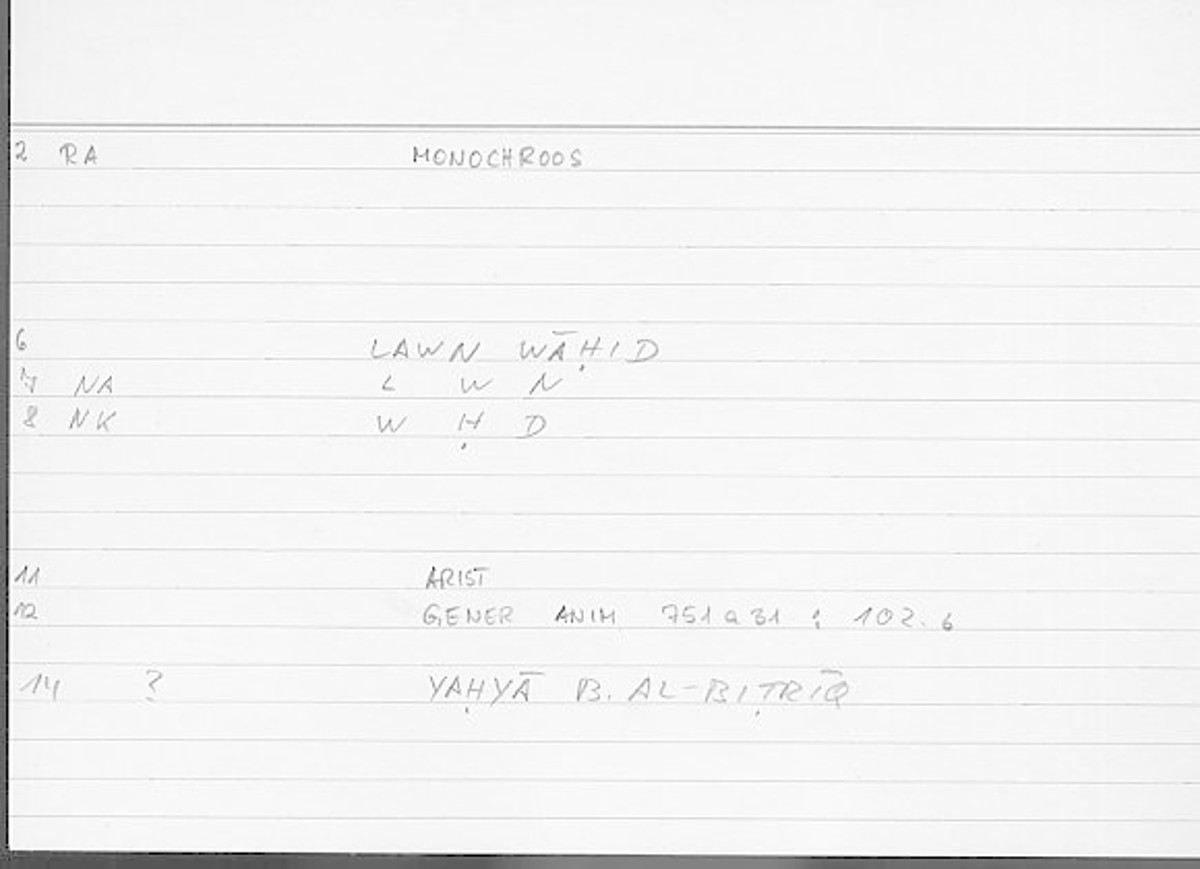 2 RA MONOCHROOS
6 LAWN WĀḤID
7 NA L W N
8 NK W Ḥ D
11 ARIST
12 GENER ANIM 751 a 31 : 102.6
14 ? YAḤYĀ B. AL-BIṬRĪQ